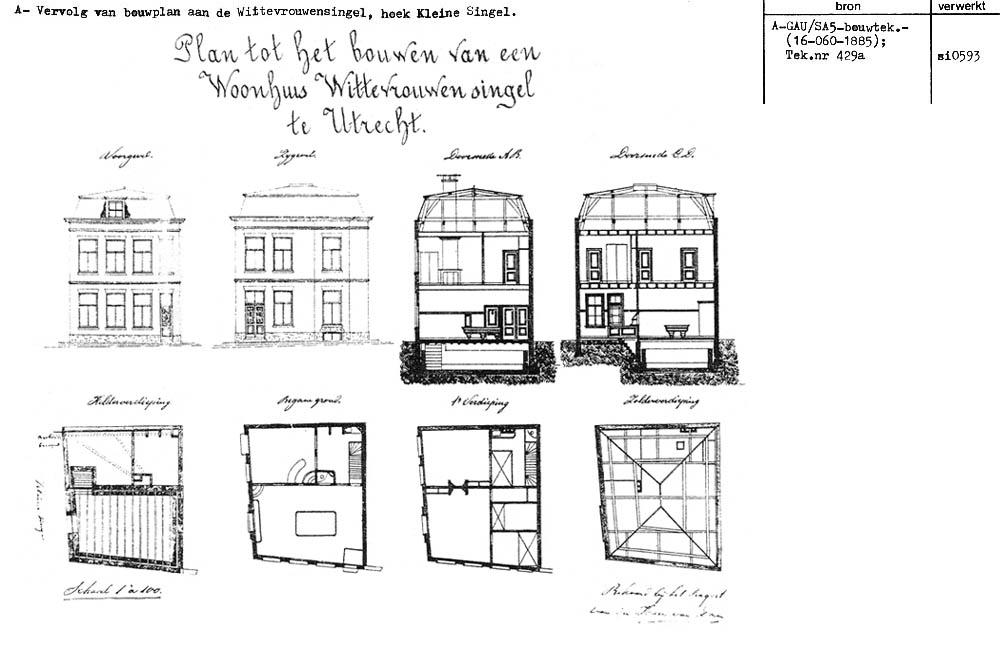 A- Vervolg van bouwplan aan de Wittevrouwensingel, hoek Kleine Singel.
bron
verwerkt
A-GAU/SA5-bouwtek.-
(16-060-1885);
Tek.nr 429a
si0593
Plan tot het bouwen van een
Woonhuis Wittevrouwensingel
te Utrecht.
Voorgevel.
Zijgevel.
Doorsnede A.B.
Doorsnede C.D.
Kelderverdieping
Begane grond.
1e Verdieping
Zolderverdieping
Schaal 1 à 100.